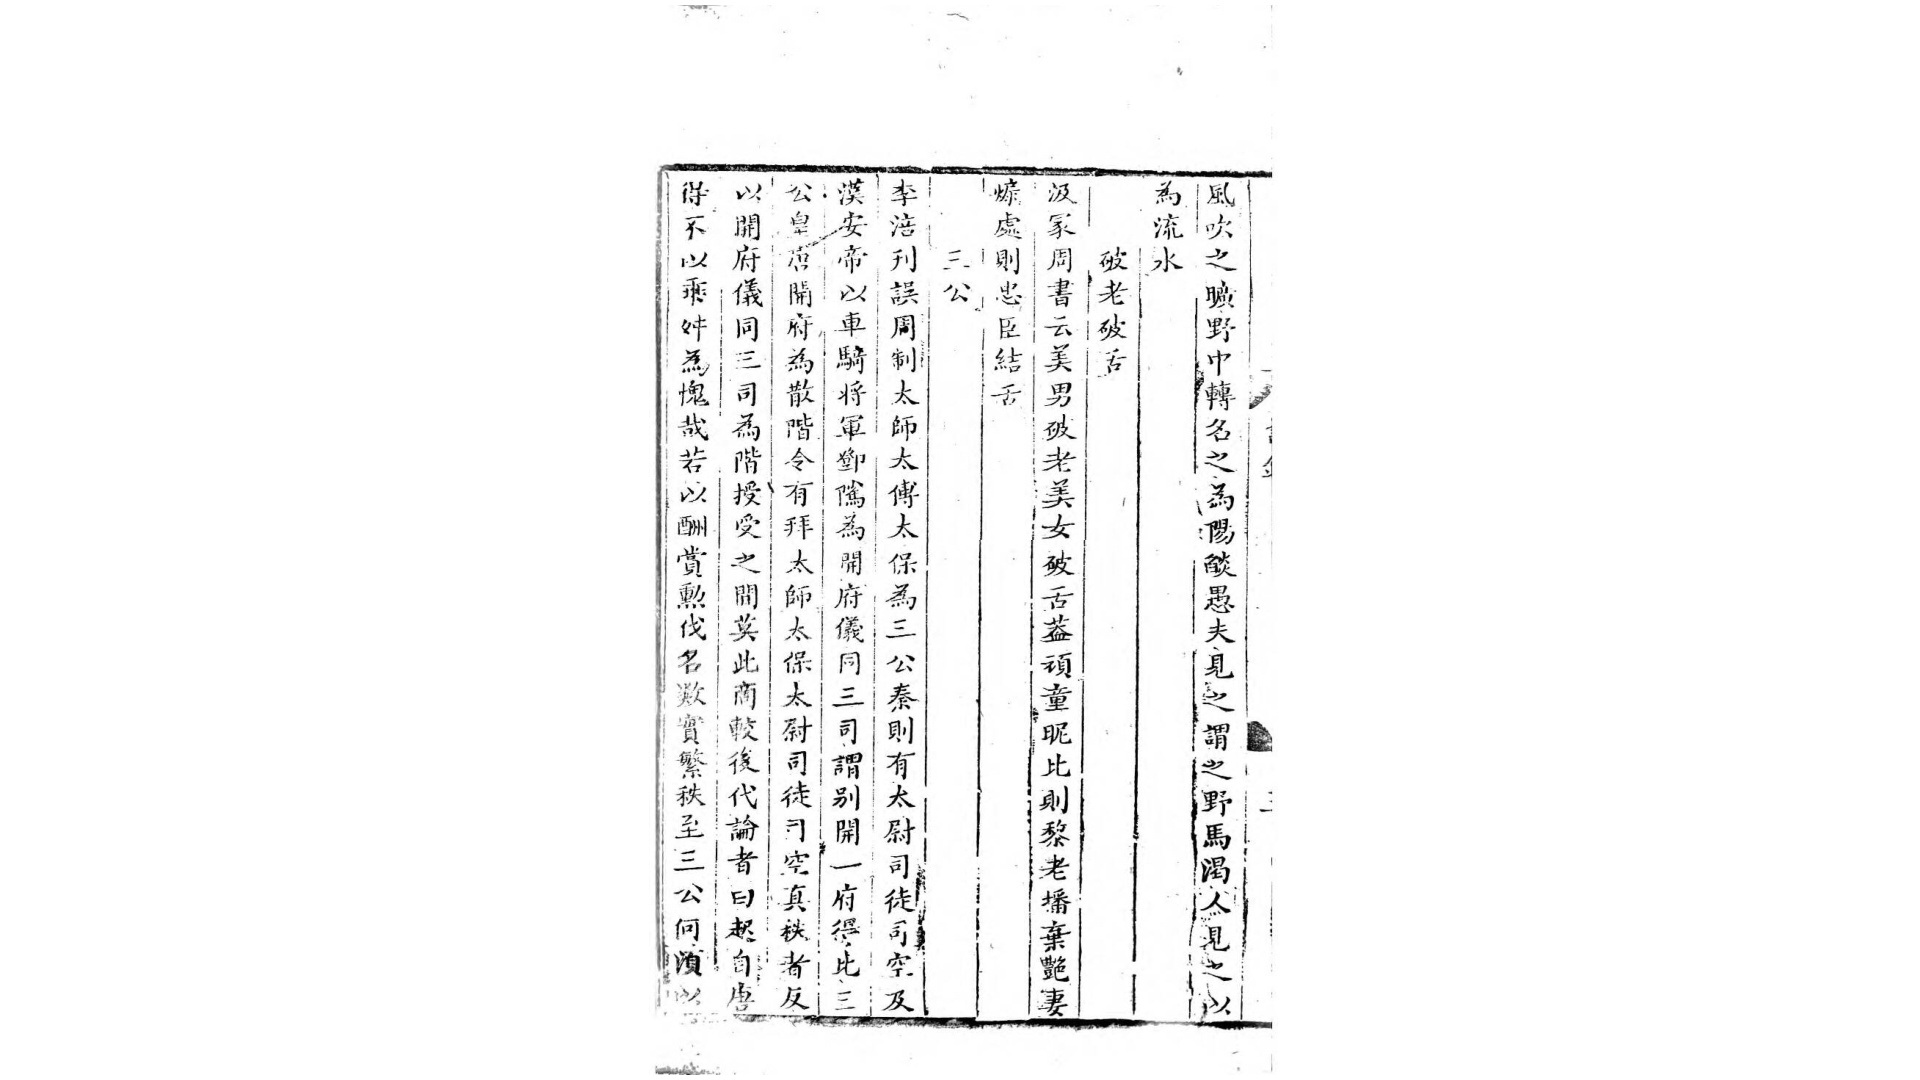 風吹之曠野中轉名之為陽燄愚夫見之謂之野馬渴人見之以
為流水
破老破舌
汲冢周書云美男破老美女破舌蓋頑童昵比則黎老播棄艷妻
煽處則忠臣結舌
三公
李涪刊誤周制太師太傅太保為三公秦則有太尉司徒司空及
漢安帝以車騎将軍鄧隲為開府儀同三司謂别開一府得比三
公皇唐開府為散階令有拜太師太保太尉司徒司空真秩者反
以開府儀同三司為階授受之間莫此商較後代論者曰起自唐
得不以乖舛為愧哉若以酬賞勲伐名數實繁秩至三公何湏以